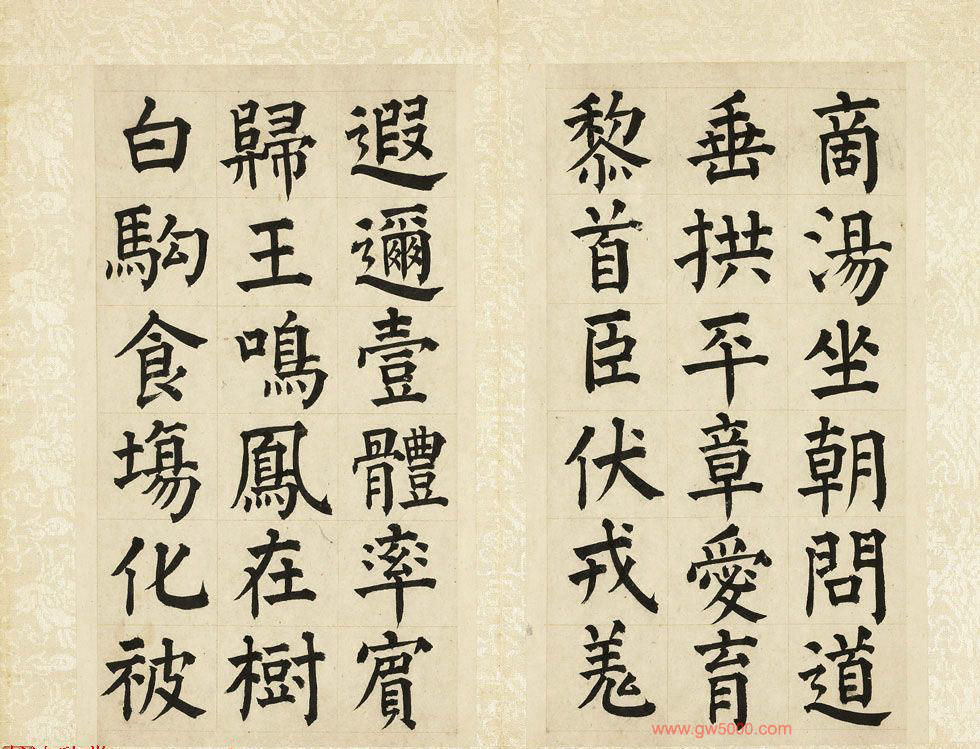 商湯坐朝問道
垂拱平章愛育
黎首臣伏戎羌
遐邇壹體率賓
歸王鳴鳳在樹
白駒食場化被
www.gw5000.com